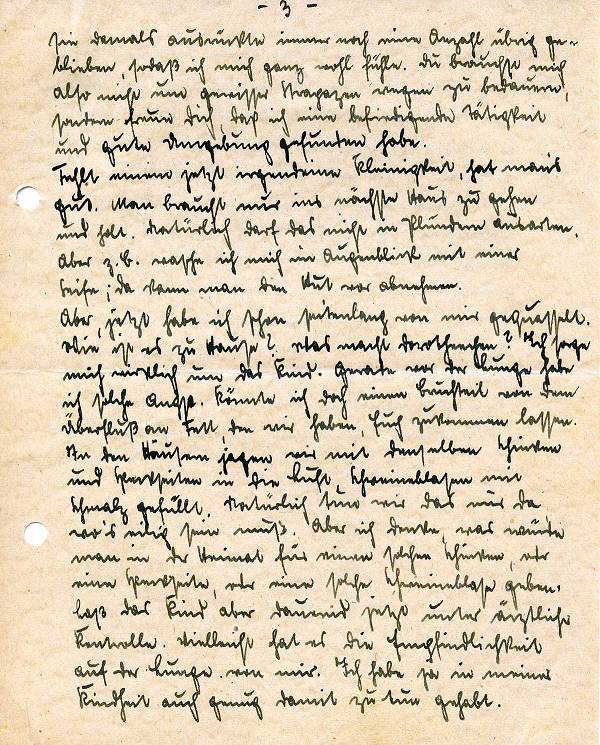 - 3 -
sie damals ausrückte immer noch eine Anzahl übrig ge-
blieben, sodaß ich mich ganz wohl fühle. Du brauchst mich
also nicht um gewisser Strapazen wegen zu bedauern,
sondern freue dich, daß ich eine befriedigende Tätigkeit
und gute Umgebung gefunden habe.
Fehlt einem jetzt irgendeine Kleinigkeit, hat man's
gut. Man braucht nur ins nächste Haus zu gehen
und holt. Natürlich darf das nicht in Plündern ausarten.
Aber z.B. wasche ich mich im Augenblick mit einer
Seife; da kann man den Hut vor abnehmen.
Aber, jetzt habe ich schon seitenlang von mir gequasselt.
Wie ist es zu Hause? Was macht Dorotheechen? Ich sorge
mich wirklich um das Kind. Gerade vor der Lunge habe
ich solche Angst. Könnte ich doch einen Bruchteil von dem
Überfluß an Fett, den wir haben, Euch zukommen lassen.
In den Häusern jagen wir mit denselben Schinken
und Speckseiten in die Luft, Schweineblasen mit
Schmalz gefüllt. Natürlich tun wir das nur da
wo's nötig sein muß. Aber ich denke, was würde
man in der Heimat für einen solchen Schinken, oder
eine Speckseite, oder eine solche Schweineblase geben.
Laß das Kind aber dauernd jetzt unter ärztliche
Kontrolle. Vielleicht hat es die Empfindlichkeit
auf der Lunge von mir. Ich habe ja in meiner
Kindheit auch genug damit zu tun gehabt.